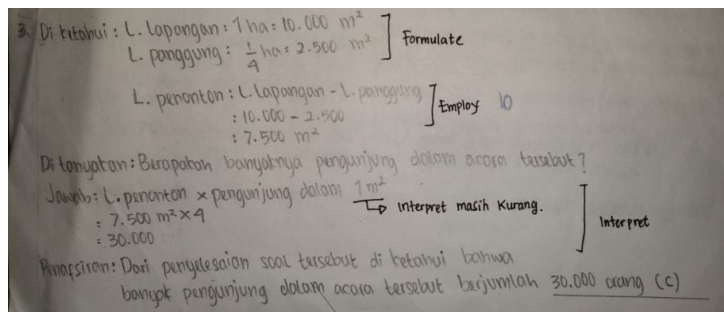 3. Di ketahui : L. lapangan : 1 ha = 10.000 m²
L. panggung : 1/4 ha = 2.500 m²
Formulate
L. penonton : L. lapangan - L. panggung
: 10.000 - 2.500
: 7.500 m²
Employ 10
Di tanyakan : Berapakah banyaknya pengunjung dalam acara tersebut ?
Jawab : L. penonton x pengunjung dalam 1 m²
= 7.500 m² x 4
Interpret masih kurang.
: 30.000
Interpret
Penafsiran : Dari penyelesaian soal tersebut di ketahui bahwa
banyak pengunjung dalam acara tersebut berjumlah 30.000 orang (c)